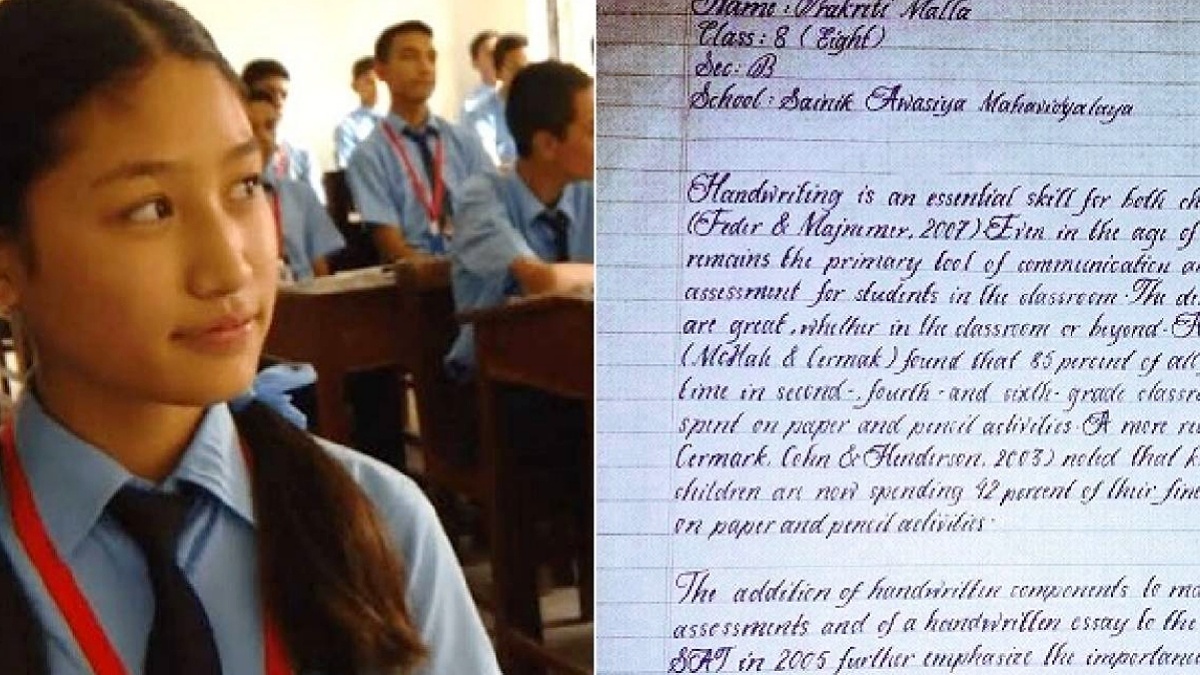 Name : Prakriti Malla
Class : 8 ( Eight )
Sec : B
School : Sainik Awasiya Mahavidyalaya
Handwriting is an essential skill for both ch
(Feder & Majnemer, 2007) Even in the age of
remains the primary tool of communication a
assessment for students in the classroom. The de
are great, whether in the classroom or beyond. A
(McHale & Cermak) found that 85 percent of all
time in second-, fourth - and sixth - grade classro
spent on paper and pencil activities. A more re
Cermark, Cohn & Henderson, 2003) noted that k
children are now spending 42 percent of their fine
on paper and pencil activities.
The addition of handwritten components to ma
assessments and of a handwritten essay to the
SAT in 2005 further emphasize the importance